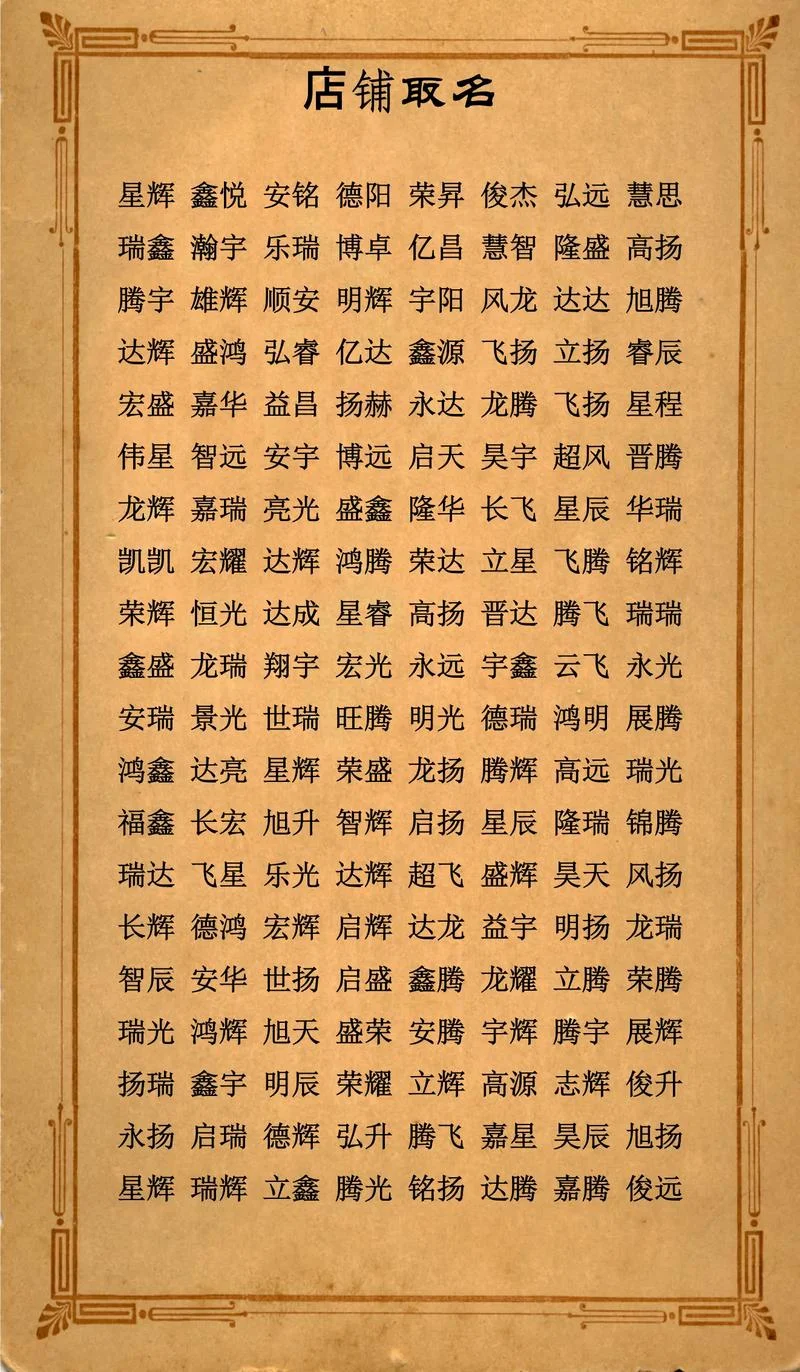 店铺取名
星辉 鑫悦 安铭 德阳 荣昇 俊杰 弘远 慧思
瑞鑫 瀚宇 乐瑞 博卓 亿昌 慧智 隆盛 高扬
腾宇 雄辉 顺安 明辉 宇阳 风龙 达达 旭腾
达辉 盛鸿 弘睿 亿达 鑫源 飞扬 立扬 睿辰
宏盛 嘉华 益昌 扬赫 永达 龙腾 飞扬 星程
伟星 智远 安宇 博远 启天 昊宇 超风 晋腾
龙辉 嘉瑞 亮光 盛鑫 隆华 长飞 星辰 华瑞
凯凯 宏耀 达辉 鸿腾 荣达 立星 飞腾 铭辉
荣辉 恒光 达成 星睿 高扬 晋达 腾飞 瑞瑞
鑫盛 龙瑞 翔宇 宏光 永远 宇鑫 云飞 永光
安瑞 景光 世瑞 旺腾 明光 德瑞 鸿明 展腾
鸿鑫 达亮 星辉 荣盛 龙扬 腾辉 高远 瑞光
福鑫 长宏 旭升 智辉 启扬 星辰 隆瑞 锦腾
瑞达 飞星 乐光 达辉 超飞 盛辉 昊天 风扬
长辉 德鸿 宏辉 启辉 达龙 益宇 明扬 龙瑞
智辰 安华 世扬 启盛 鑫腾 龙耀 立腾 荣腾
瑞光 鸿辉 旭天 盛荣 安腾 宇辉 腾宇 展辉
扬瑞 鑫宇 明辰 荣耀 立辉 高源 志辉 俊升
永扬 启瑞 德辉 弘升 腾飞 嘉星 昊辰 旭扬
星辉 瑞辉 立鑫 腾光 铭扬 达腾 嘉腾 俊远